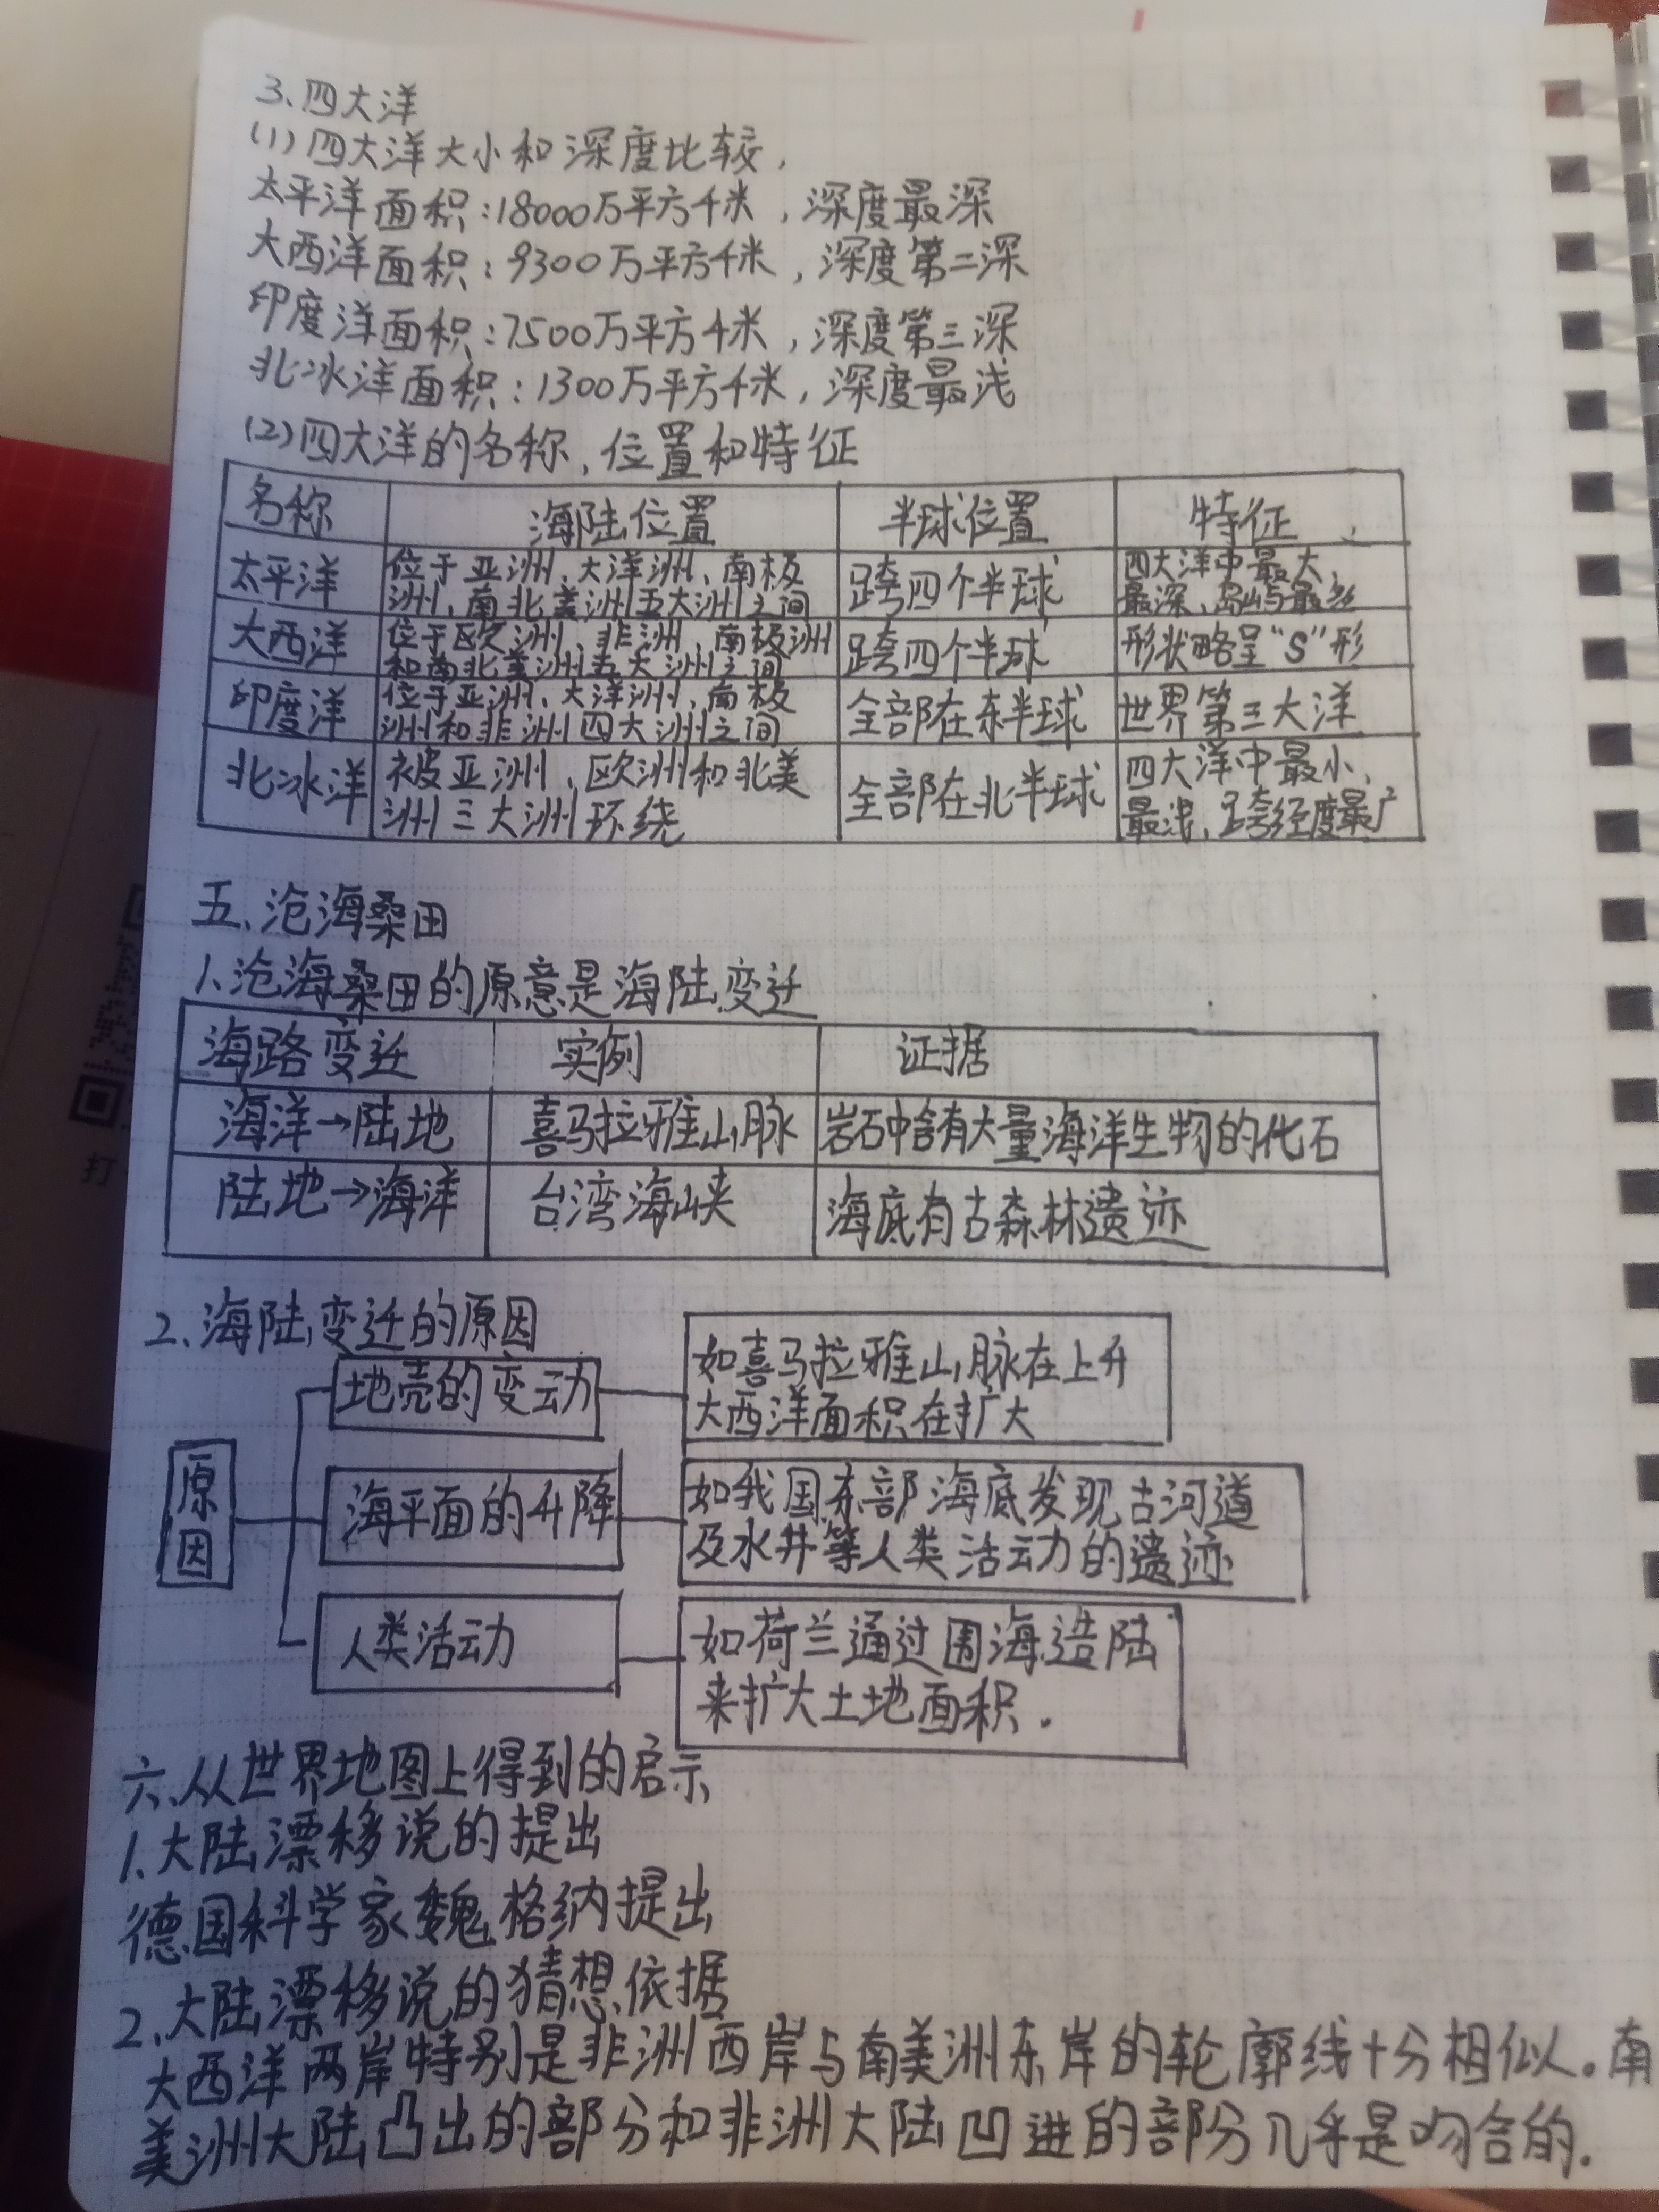 3、四大洋
(1)四大洋大小和深度比较,
太平洋面积:18000万平方千米,深度最深
大西洋面积:9300万平方千米,深度第二深
印度洋面积:7500万平方千米,深度第三深
北冰洋面积:1300万平方千米,深度最浅
(2)四大洋的名称、位置和特征
名称 海陆位置 半球位置 特征
太平洋 位于亚洲、大洋洲、南极 跨四个半球 四大洋中最大、
洲、南北美洲五大洲之间 最深、岛屿最多
大西洋 位于欧洲、非洲、南极洲 跨四个半球 形状略呈“S”形
和南北美洲五大洲之间
印度洋 位于亚洲、大洋洲、南极 全部在东半球 世界第三大洋
洲和非洲四大洲之间
北冰洋 被亚洲、欧洲和北美 全部在北半球 四大洋中最小、
洲三大洲环绕 最浅、跨经度最广
五、沧海桑田
1、沧海桑田的原意是海陆变迁
海路变迁 实例 证据
海洋→陆地 喜马拉雅山脉 岩石中含有大量海洋生物的化石
陆地→海洋 台湾海峡 海底有古森林遗迹
2、海陆变迁的原因
原因
地壳的变动
如喜马拉雅山脉在上升
大西洋面积在扩大
海平面的升降
如我国东部海底发现古河道
及水井等人类活动的遗迹
人类活动
如荷兰通过围海造陆
来扩大土地面积.
六、从世界地图上得到的启示
1、大陆漂移说的提出
德国科学家魏格纳提出
2、大陆漂移说的猜想依据
大西洋两岸特别是非洲西岸与南美洲东岸的轮廓线十分相似。南
美洲大陆凸出的部分和非洲大陆凹进的部分几乎是吻合的.
打